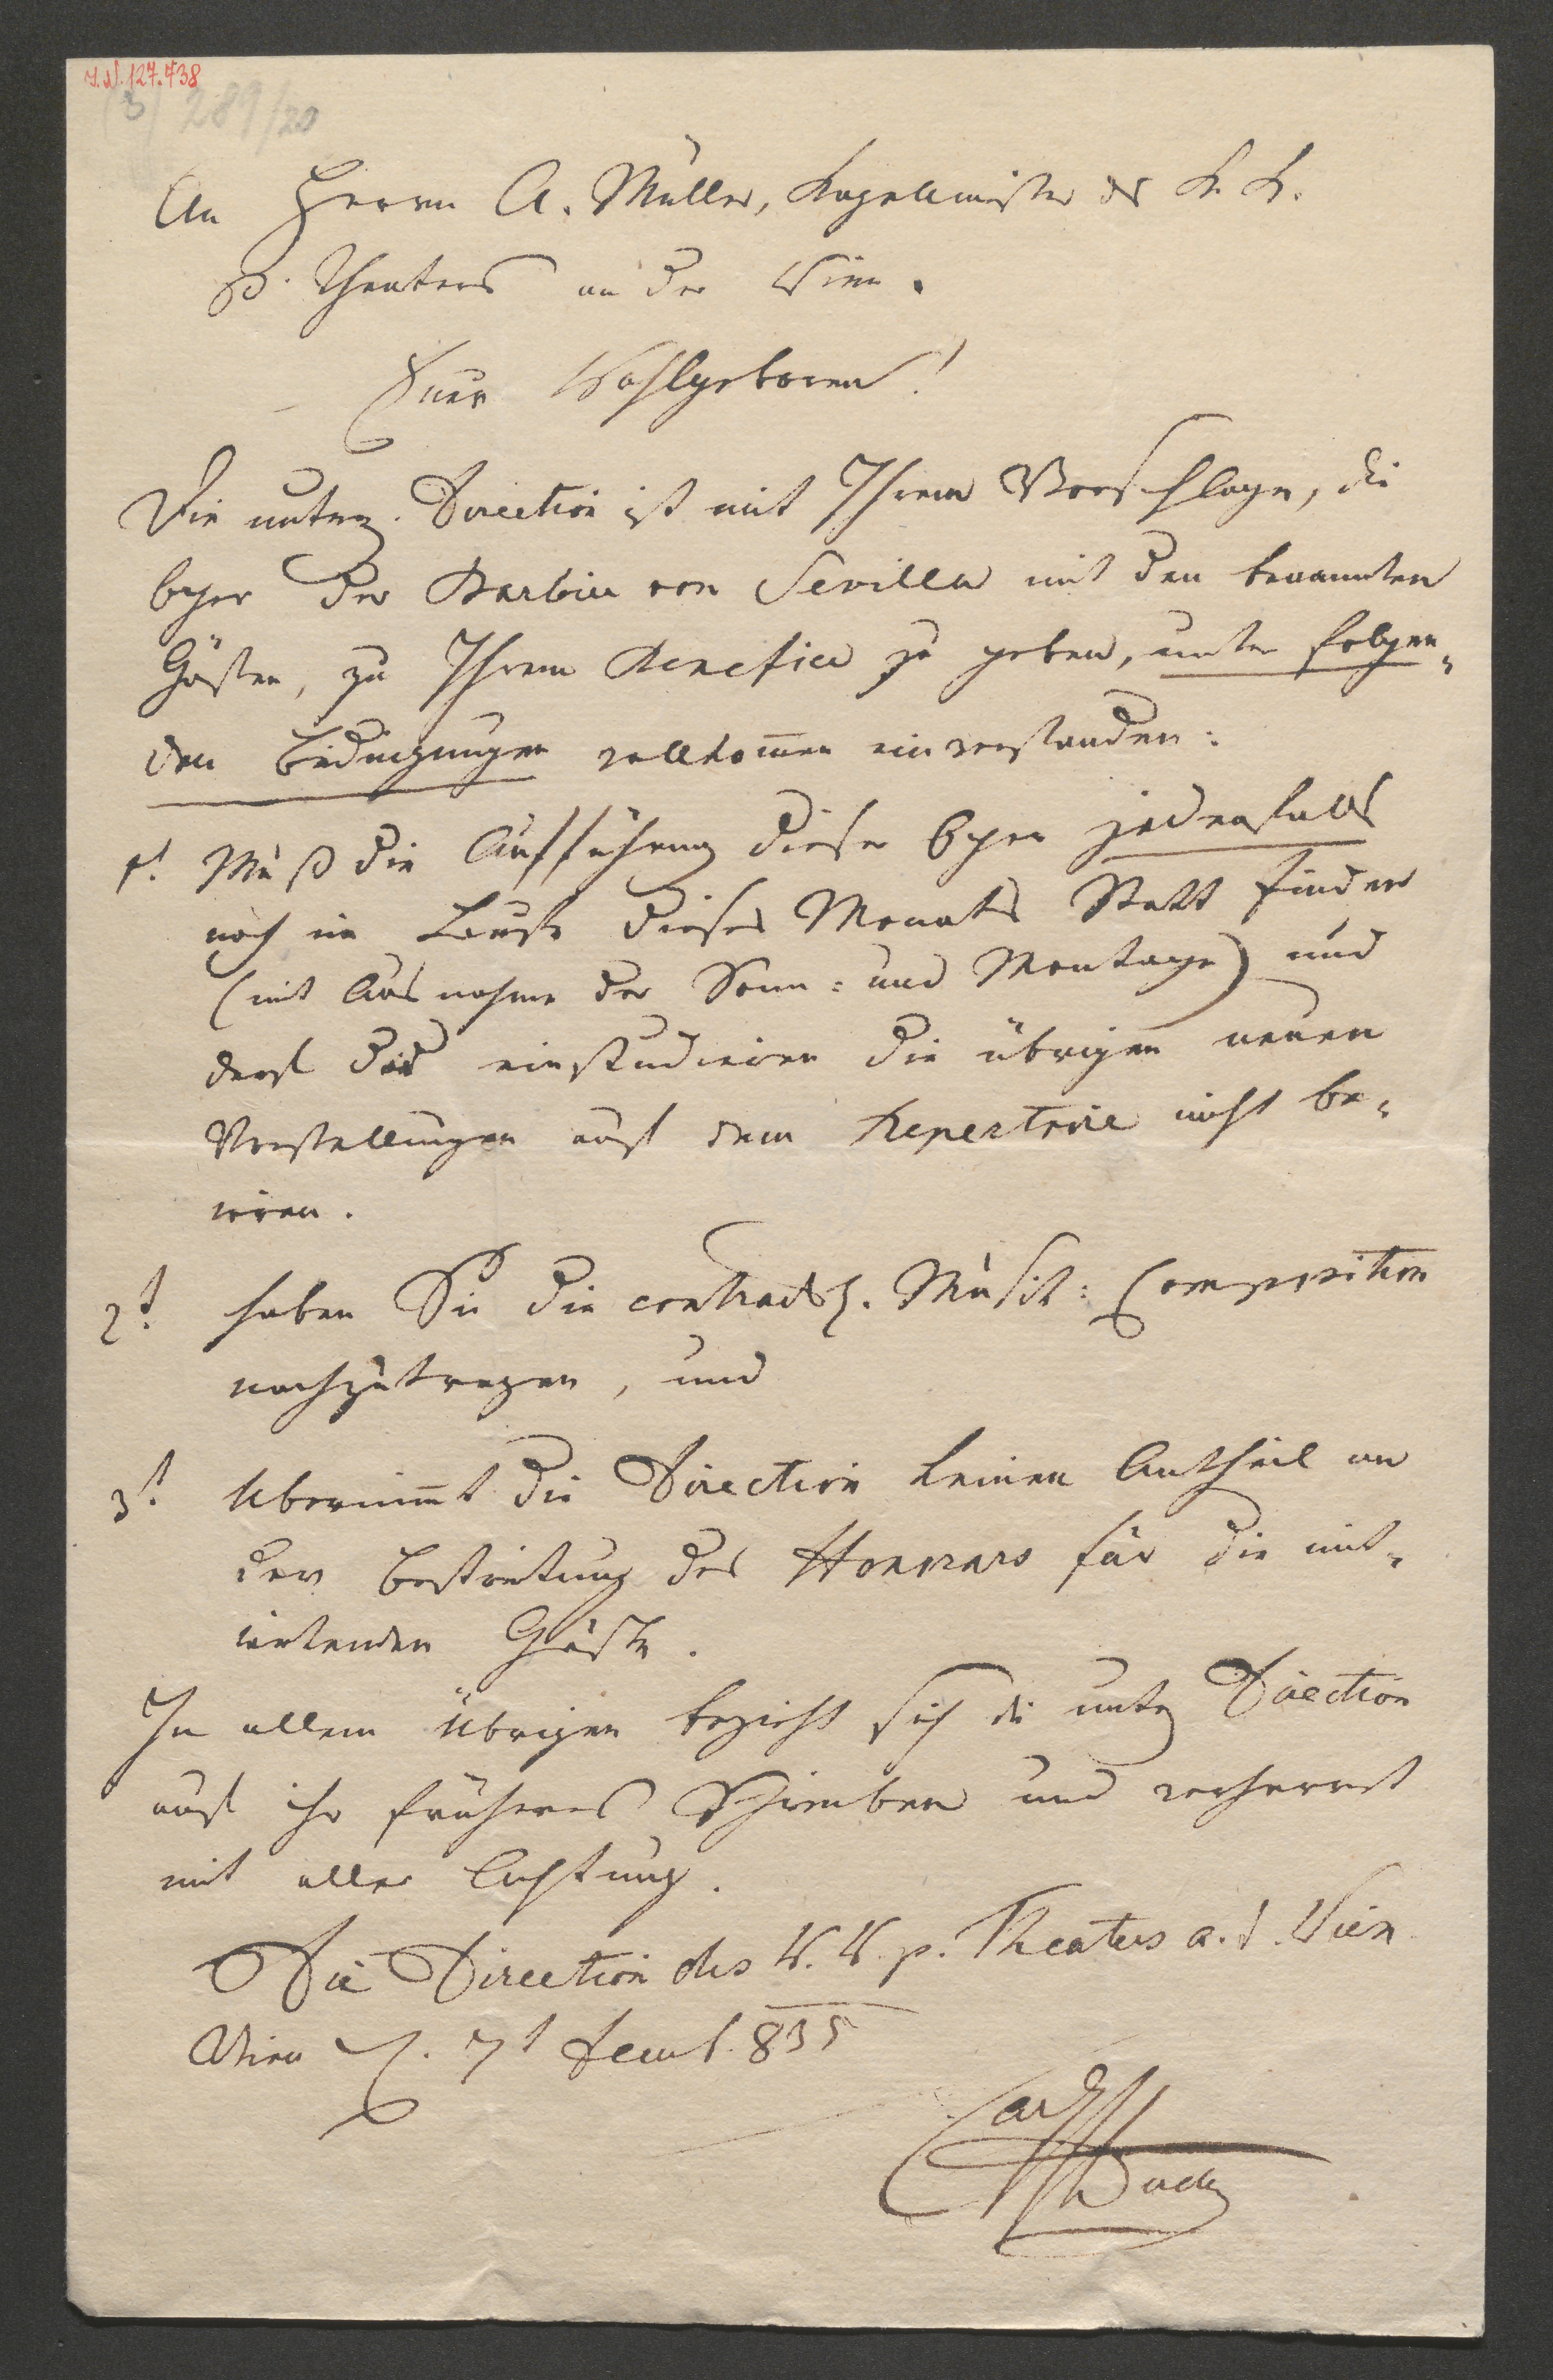 I.N. 127.438
(3) 289/20
An Herrn A. Müller, Kapellmeister des k. k.
p. Theaters an der Wien.
Euer Wohlgeboren!
Die unterz. Direction ist mit Ihrem Vorschlage, die
Oper der Barbier von Sevilla mit den benannten
Gästen, zu Ihrem Benefice zu geben, unter folgen-
den Bedingungen vollkom̄en einverstanden:
1t. Muß die Aufführung dieser Oper jedenfalls
noch im Laufe dieses Monats Statt finden
(mit Ausnahme der Sonn- und Montage) und
darf das einstudieren die übrigen neuen
Vorstellungen auf dem Repertoire nicht be-
irren.
2t. haben Sie die contractl. Musik-Composition
nachzutragen, und
3t. Übernim̄t die Direction keinen Antheil an
der Bestreitung des Honorars für die mit-
wirkenden Gäste.
In allem Übrigen bezieht sich die unterz Direction
auf ihr früheres Schreiben und verharret
mit aller Achtung.
Die Direction des k. k. p. Theaters a. d. Wien
Wien d. 7t Decemb. 835
Carl